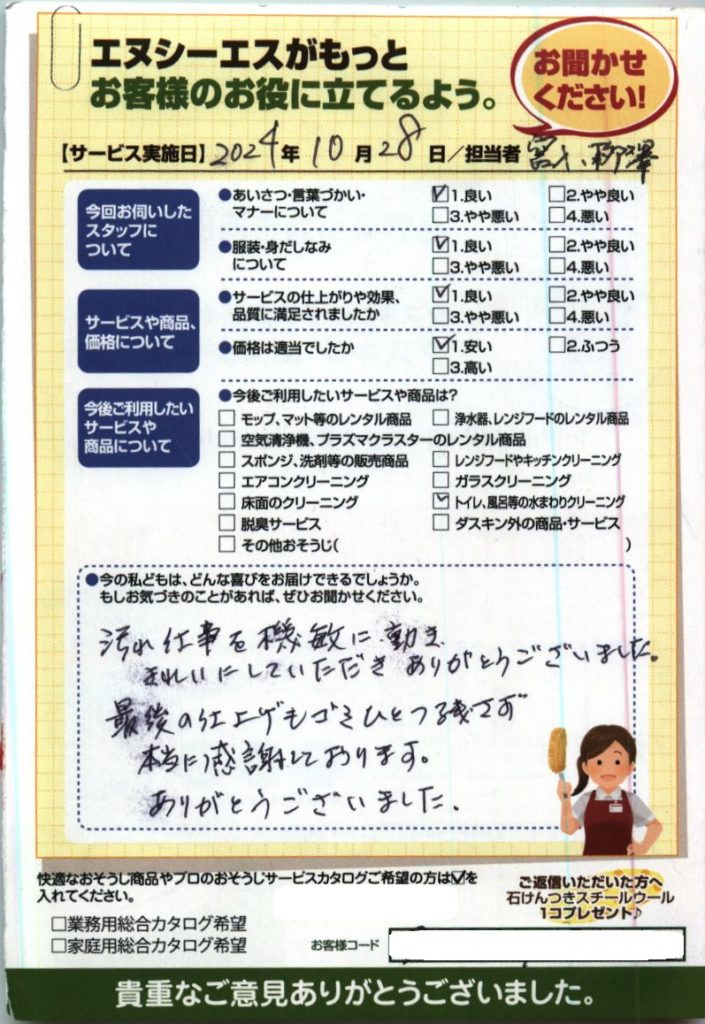 エヌシーエスがもっと
お客様のお役に立てるよう。
お聞かせ
ください!
【サービス実施日】2024年10月28日/担当者
今回お伺いした
スタッフに
ついて
●あいさつ・言葉づかい・
マナーについて
☑1.良い □2.やや良い
□3.やや悪い □4.悪い
●服装・身だしなみ
について
☑1.良い □2.やや良い
□3.やや悪い □4.悪い
サービスや商品、
価格について
●サービスの仕上がりや効果、
品質に満足されましたか
☑1.良い □2.やや良い
□3.やや悪い □4.悪い
●価格は適当でしたか
☑1.安い □2.ふつう
□3.高い
今後ご利用したい
サービスや
商品について
●今後ご利用したいサービスや商品は?
□ モップ、マット等のレンタル商品 □ 浄水器、レンジフードのレンタル商品
□ 空気清浄機、プラズマクラスターのレンタル商品
□ スポンジ、洗剤等の販売商品 □ レンジフードやキッチンクリーニング
□ エアコンクリーニング □ ガラスクリーニング
□ 床面のクリーニング ☑ トイレ、風呂等の水まわりクリーニング
□ 脱臭サービス □ ダスキン外の商品・サービス
□ その他おそうじ( )
●今の私どもは、どんな喜びをお届けできるでしょうか。
もしお気づきのことがあれば、ぜひお聞かせください。
汚れ仕事を機敏に動き
きれいにしていただきありがとうございました。
最後の仕上げもゴミひとつ残さず
本当に感謝しております。
ありがとうございました.
快適なおそうじ商品やプロのおそうじサービスカタログご希望の方は☑を
入れてください。
□業務用総合カタログ希望
□家庭用総合カタログ希望
ご返信いただいた方へ
石けんつきスチールウール
1コプレゼント♪
お客様コード
貴重なご意見ありがとうございました。